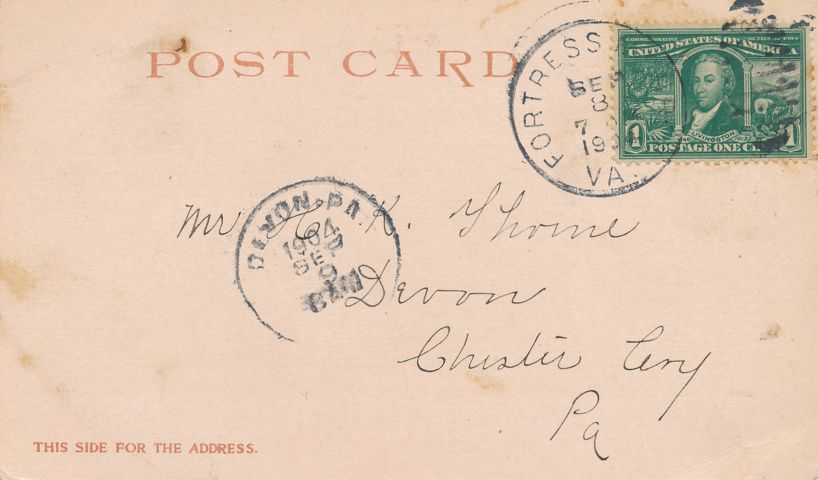 POST CARD
FORTRESS
SEP
8
7
19
VA.
COMMEMORATIVE SERIES OF 1904
UNITED STATES OF AMERICA
LIVINGSTON
1 1
POSTAGE ONE CE
DEVON, PA.
1904
SEP
9
8 AM
Mr H. K. Thorne
Devon
Chester Cny
Pa
THIS SIDE FOR THE ADDRESS.